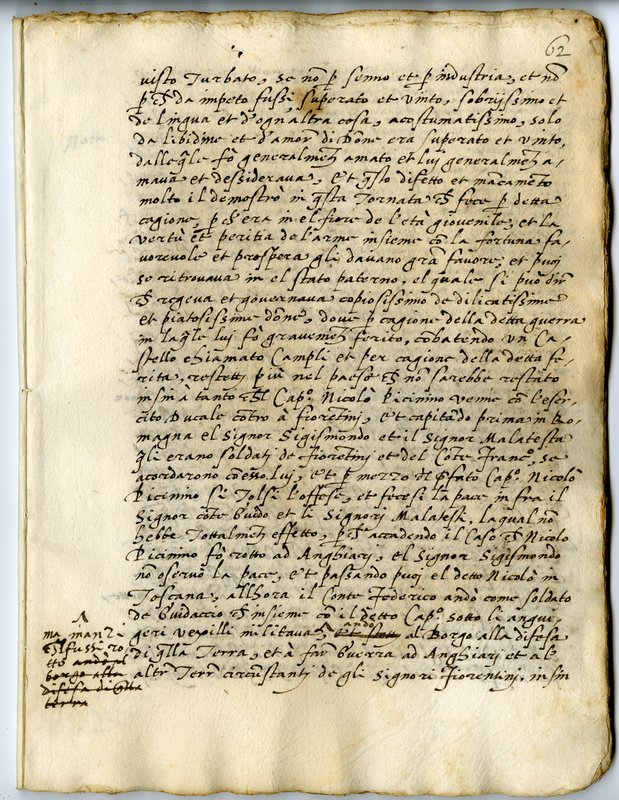 62
visto Turbato, se nõ p senno et p industria, et nõ
p da impeto fussi superato et vinto, sobrijssimo et
de lingua et d'ogni altra cosa, acostumatissimo, solo
da libidine et d'amor di Done era superato et vinto,
dalle qle fò generalmente amato et lui generalmente a-
mava et dessiderava, Et qsto difetto et mãcamẽto
molto il demostrò in qsta Tornata fece p detta
cagione, p era in el fiore de l'età giovenile, et la
vertù et peritia de l'arme insieme cõ la fortuna fa-
vorevole et prospera gli davano grã favore, et puoj
se ritrovava in el stato paterno, el quale si può dir
regeva et governava copiosissimo de dilicatissime
et piatosissime dõne, dove p cagione della detta guerra
in la qle lui fò gravemente ferito, cõbatendo un Ca-
stello chiamato Campli et per cagione della detta fe-
rita, restette più nel paese nõ sarebbe restato
insin à tanto Capº. Nicolò Picinino venne cõ l'eser-
cito Ducale cõtro à fiorentinj, et capitãdo prima in Ro-
magna el Signor Sigismondo et il Signor Malatesta
qli erano soldatj de fiorentinj et del Cõte Francº, se
acordarono cõ esso lui, Et p mezzo pfato Capº. Nicolò
Picinino si Tolsi l'offese, et fecesi la pace infra il
Signor cõte Guido et li Signorj Malatesti, la qual nõ
hebbe Tottalmente effetto, p accadendo il Caso Nicolo
Picinino fò rotto ad Anghiarj, el Signor Sigismondo
nõ oservò la pace, Et passando puoj el detto Nicolò in
Toscana, allhora il Conte Federico andò come soldato
de Guidaccio insieme cõ il detto Capº. sotto li angui-
geri vexilli militava, andò al Borgo alla difesa
di qlla Terra, et à far Guerra ad Anghiarj et al-
altre Terre circũstanti de gli Signori fiorentinj, insin
ma inanzi
fussi ro-
tto andò al
borgo alla
difesa di qlla
terra